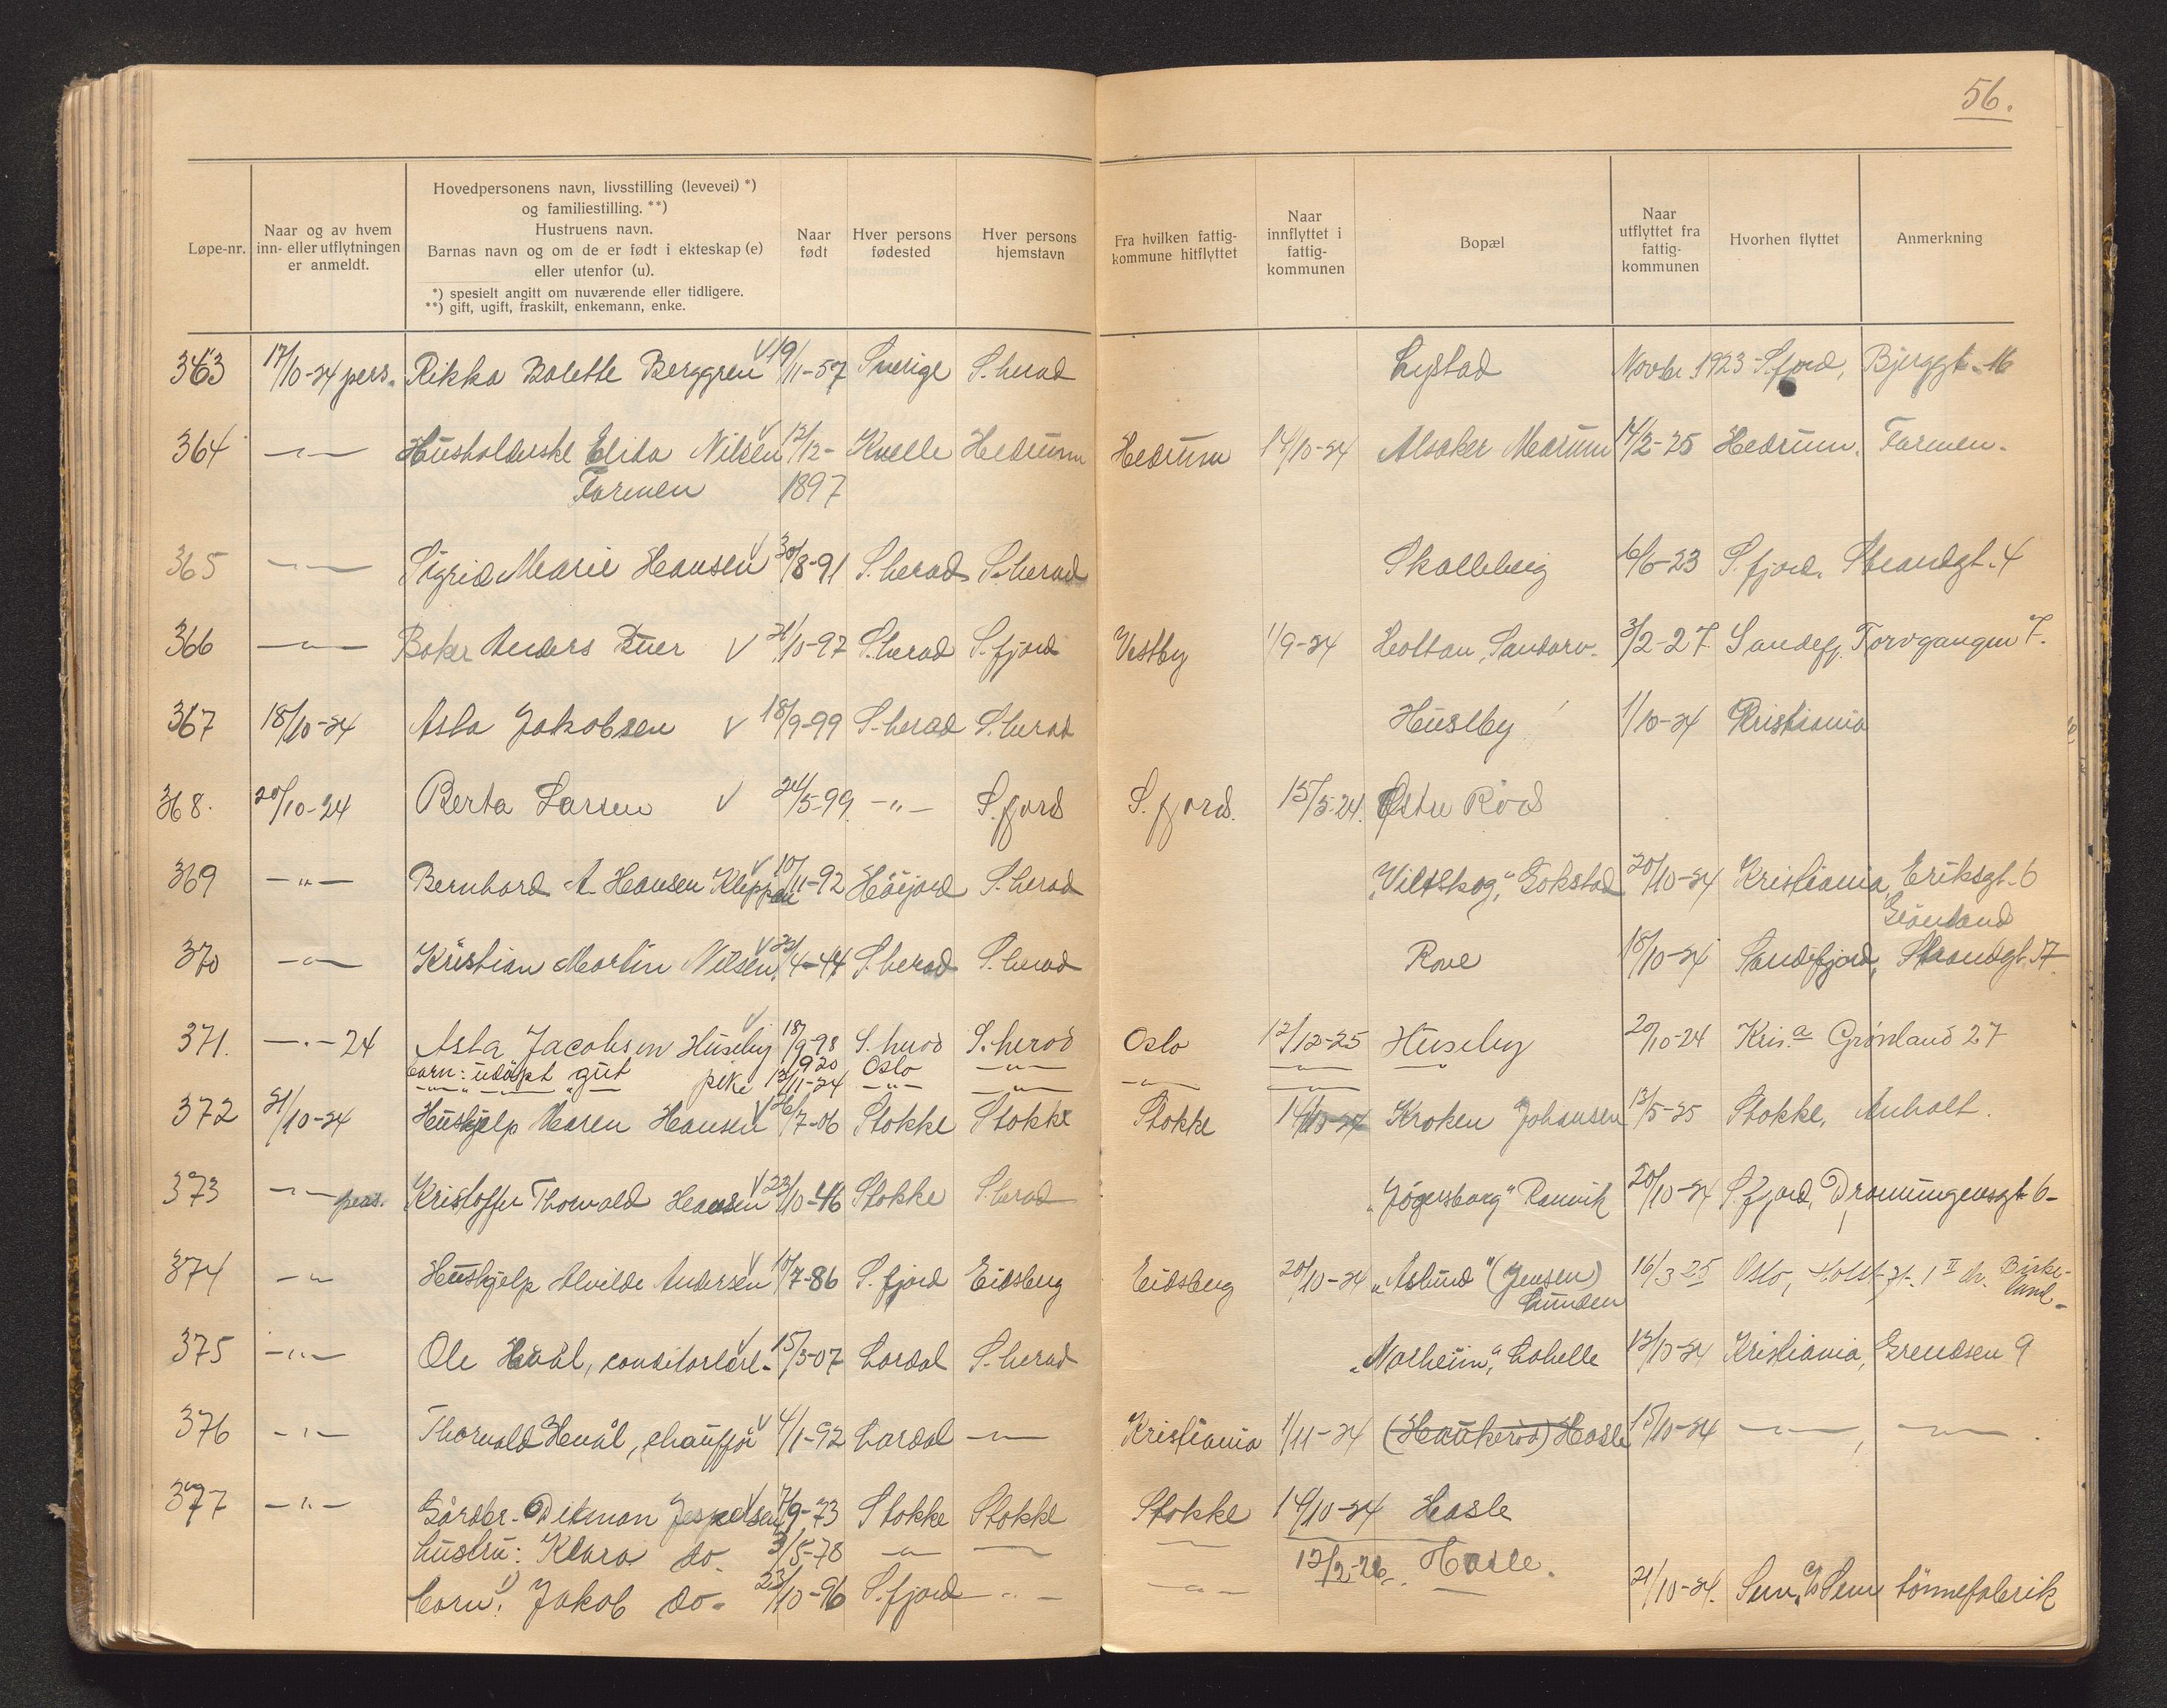 56.
Løpe-nr.
Naar og av hvem
inn- eller utflytningen
er anmeldt.
Hovedpersonens navn, livsstilling (levevei) *)
og familiestilling. **)
Hustruens navn.
Barnas navn og om de er født i ekteskap (e)
eller utenfor (u).
*) spesielt angitt om nuværende eller tidligere.
**) gift, ugift, fraskilt, enkemann, enke.
Naar
født
Hver persons
fødested
Hver persons
hjemstavn
Fra hvilken fattig-
kommune hitflyttet
Naar
innflyttet i
fattig-
kommunen
Bopæl
Naar
utflyttet fra
fattig-
kommunen
Hvorhen flyttet
Anmerkning
363 17/10-24 pers. Rikka Bolette Berggren V 19/11-57 Sverige S.herad Lystad Novbr. 1923 S.fjord, Bjerggt. 16
364 —"— Husholderske Elida Nilsen V 12/12- Kvelle Hedrum Hedrum 14/10-24 Alsaker Marum 14/2-25 Hedrum. Farmen.
Farmen 1897
365 —"— Sigrid Marie Hansen V 30/8-91 S.herad S.herad Skalleberg 16/6-23 S.fjord. Strandgt. 4
366 —"— Baker Anders Buer V 21/10-97 S.herad S.fjord Vestby 1/9-24 Holtan, Sandarv. 3/2-27. Sandefj. Torvgangen 7.
367 18/10-24 Asta Jakobsen V 18/9-99 S.herad S.herad Huseby 1/10-24 Kristiania
368. 20/10-24 Berta Larsen V 24/5-99. —"— S.fjord S.fjord. 15/5-24. Østre Röd
369 —"— Bernhard A Hansen Kleppan V 10/11-92 Höijord S.herad "Viltskog", Gokstad 20/10-24 Kristiania, Eriksgt. 6
Grönland
370 —"— Kristian Martin Nilsen V 22/4-44 S.herad S.herad Rove 18/10-24 Sandefjord, Strandgt. 17
371. —"— 24 Asta Jacobsen Huseby V 18/9-98 S.herad S.herod Oslo 12/12-25 Huseby 20/10-24 Kris.a Grønland 27
barn: udöpt gut 1920 Oslo —"—
—"— —"— pike 12/11-24 —"— —"— —"— —"—
372 21/10-24 Hushjelp Maren Hansen V 26/7-06 Stokke Stokke Stokke 14/10-24 Kroken Johansen 12/5-25 Stokke, Anholt.
373 —"— pers. Kristoffer Thorvald Hansen V 23/10-46 Stokke S.herad "Jögersborg" Ranvik 20/10-24 S.fjord, Dronningensgt 6-
374 —"— Hushjelp Alvilde Andersen V 10/7-86 S.fjord Eidsberg Eidsberg 20/10-24 "Aslund" (Jensen) 16/3 25 Oslo, Holst gt. 1 II Birke-
Lunden lund-
375 —"— Ole Hvål, conditorlærl. V 15/3-07 Lardal S.herad "Solheim", Lahelle 12/10-24 Kristiania, Grendsen 9
376 —"— Thorvald Hvål, chauffør V 4/1-92 Lardal —"— Kristiania 1/11-24 (Haukerød) Hasle 15/10-24 —"—, —"—.
377 —"— Gårdbr. Ditman Jespersen V 7/9-73 Stokke Stokke Stokke 14/10-24 Hasle
hustru: Klara do. 3/5-78 —"— —"— —"— 12/2-26. Hasle.
barn: Jakob do. 23/10-96 S.fjord —"— —"— 21/10-24. Sem, c/o Sem tönnefabrik